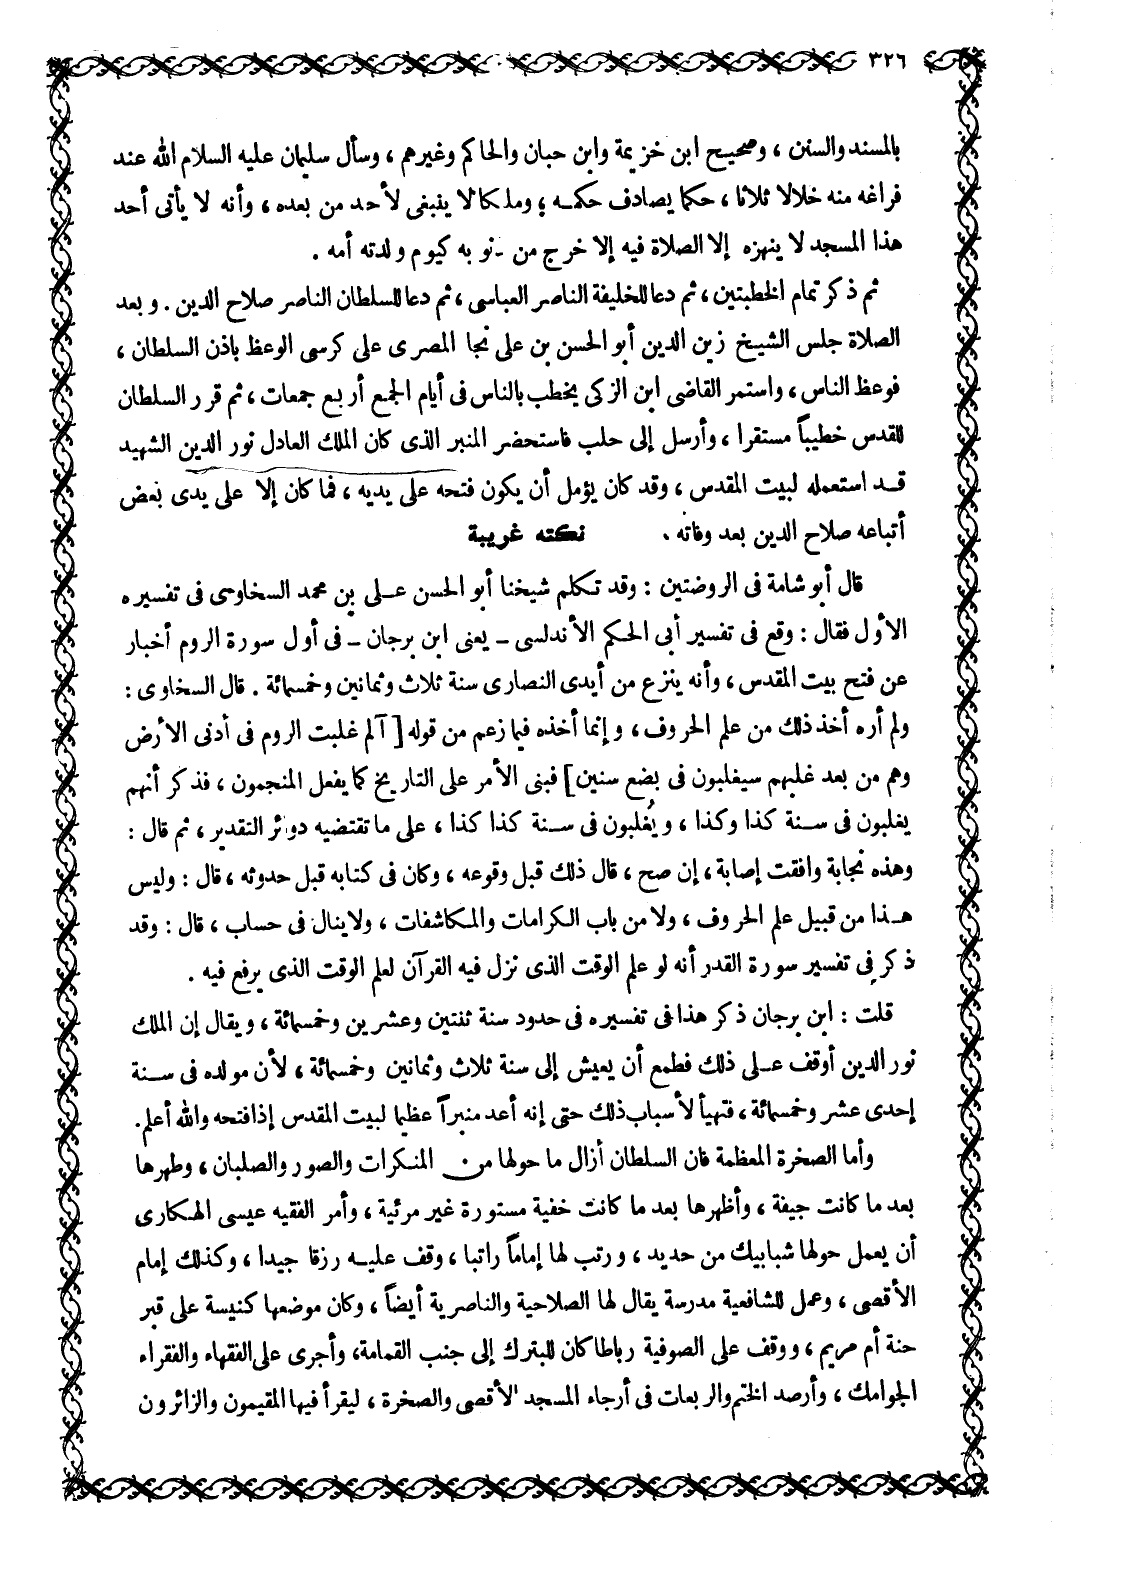 ٣٢٦
بالمسند والسنن ، وصحيح ابن خزيمة وابن حبان والحاكم وغيرهم ، وسأل سليمان عليه السلام الله عند
فراغه منه خلالا ثلاثا ، حكما يصادف حكمه ، وملكا لا ينبغى لأحد من بعده ، وأنه لا يأتى أحد
هذا المسجد لا ينهزه إلا الصلاة فيه إلا خرج من ـنوبه كيوم ولدته أمه .
ثم ذكر تمام الخطبتين ، ثم دعا للخليفة الناصر العباسى ، ثم دعا للسلطان الناصر صلاح الدين . وبعد
الصلاة جلس الشيخ زين الدين أبو الحسن بن على نجا المصرى على كرسى الوعظ باذن السلطان ،
فوعظ الناس ، واستمر القاضى ابن الزكى يخطب بالناس فى أيام الجمع أربع جمعات ، ثم قرر السلطان
للقدس خطيباً مستقرا ، وأرسل إلى حلب فاستحضر المنبر الذى كان الملك العادل نور الدين الشهيد
قد استعمله لبيت المقدس ، وقد كان يؤمل أن يكون فتحه على يديه ، فما كان إلا على يدى بعض
أتباعه صلاح الدين بعد وفاته . نكته غريبة
قال أبو شامة فى الروضتين : وقد تكلم شيخنا أبو الحسن على بن محمد السخاوى فى تفسيره
الأول فقال : وقع فى تفسير أبى الحكم الأندلسى ـ يعنى ابن برجان ـ فى أول سورة الروم أخبار
عن فتح بيت المقدس ، وأنه ينزع من أيدى النصارى سنة ثلاث وثمانين وخمسمائة . قال السخاوى :
ولم أره أخذ ذلك من علم الحروف ، وإنما أخذه فيما زعم من قوله [ آلم غلبت الروم فى أدنى الأرض
وهم من بعد غلبهم سيغلبون فى بضع سنين] فبنى الأمر على التاريخ كما يفعل المنجمون ، فذكر أنهم
يغلبون فى سنة كذا وكذا ، ويُغلبون فى سنة كذا كذا ، على ما تقتضيه دوائر التقدير ، ثم قال :
وهذه نجابة وافقت إصابة ، إن صح ، قال ذلك قبل وقوعه ، وكان فى كتابه قبل حدوثه ، قال : وليس
هذا من قبيل علم الحروف ، ولا من باب الكرامات والمكاشفات ، ولاينال فى حساب ، قال : وقد
ذكر فى تفسير سورة القدر أنه لو علم الوقت الذى نزل فيه القرآن لعلم الوقت الذى يرفع فيه .
قلت : ابن برجان ذكر هذا فى تفسيره فى حدود سنة ثنتين وعشرين وخمسمائة ، ويقال إن الملك
نور الدين أوقف على ذلك فطمع أن يعيش إلى سنة ثلاث وثمانين وخمسمائة ، لأن مولده فى سنة
إحدى عشر وخمسمائة ، فتهيأ لأسباب ذلك حتى إنه أعد منبراً عظيما لبيت المقدس إذا فتحه والله أعلم .
وأما الصخرة المعظمة فان السلطان أزال ما حولها من المنكرات والصور والصلبان ، وطهرها
بعد ما كانت جيفة ، وأظهرها بعد ما كانت خفية مستورة غير مرئية ، وأمر الفقيه عيسى الهكارى
أن يعمل حولها شبابيك من حديد ، ورتب لها إماماً راتبا ، وقف عليه رزقا جيدا ، وكذلك إمام
الأقصى ، وعمل للشافعية مدرسة يقال لها الصلاحية والناصرية أيضاً ، وكان موضعها كنيسة على قبر
حنة أم مريم ، ووقف على الصوفية رباطا كان للبترك إلى جنب القمامة ، وأجرى على الفقهاء والفقراء
الجوامك ، وأرصد الختم والربعات فى أرجاء المسجد الأقصى والصخرة ، ليقرأ فيها المقيمون والزائرون